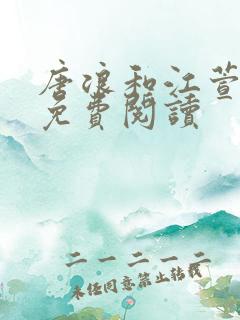 唐浪和江萱
免費閱讀
二一二一二
未经同意禁止转载